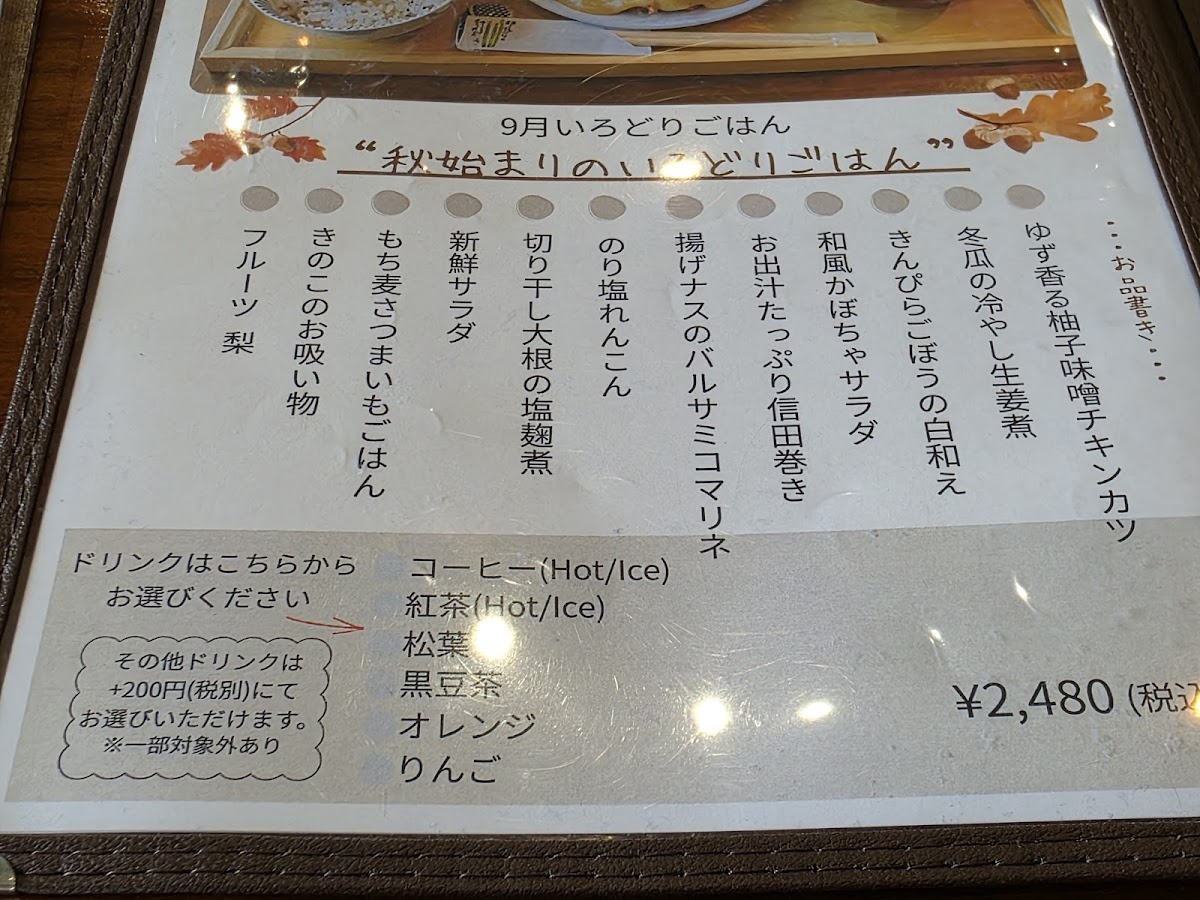 9月いろどりごはん
“秋始まりのいろどりごはん”
...お品書き...
ゆず香る柚子味噌チキンカツ
冬瓜の冷やし生姜煮
きんぴらごぼうの白和え
和風かぼちゃサラダ
お出汁たっぷり信田巻き
揚げナスのバルサミコマリネ
のり塩れんこん
切り干し大根の塩麹煮
新鮮サラダ
もち麦さつまいもごはん
きのこのお吸い物
フルーツ 梨
ドリンクはこちらから
お選びください
コーヒー(Hot/Ice)
紅茶(Hot/Ice)
松葉
黒豆茶
オレンジ
りんご
その他ドリンクは
+200円(税別)にて
お選びいただけます。
※一部対象外あり
¥2,480 (税込